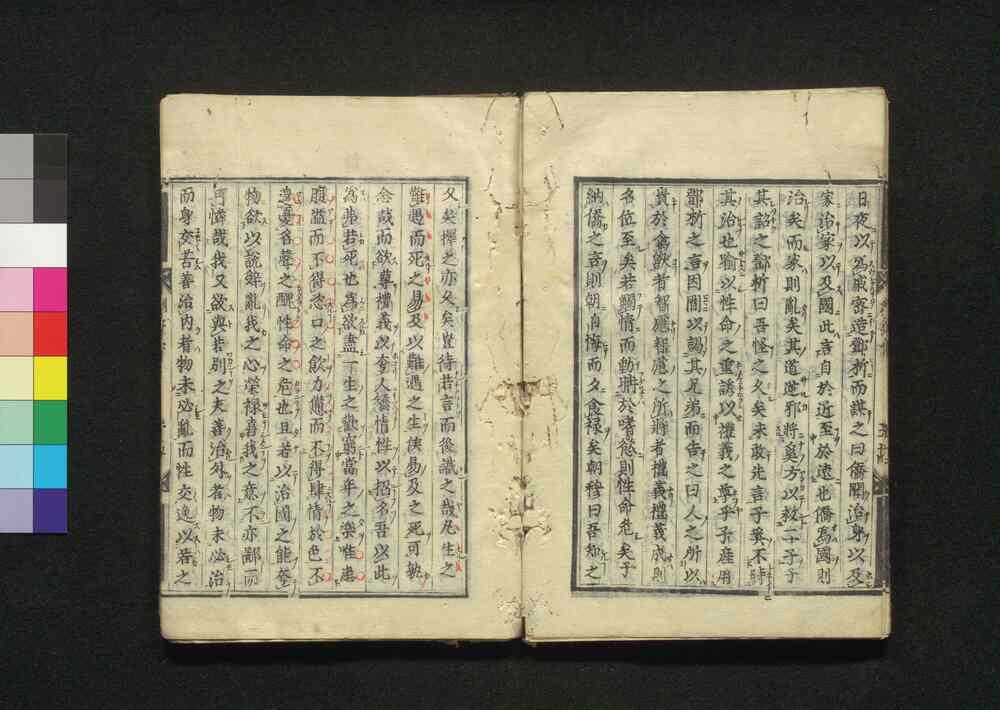 日夜以爲戚密造鄧析而謀之曰僑聞治身以及
家治家以及國此言自於近至於遠也僑爲國則
治矣而家則亂矣其道逆邪將奚方以救二子子
其詔之鄧析曰吾怪之久矣未敢先言子奚不時
其治也喻以性命之重誘以禮義之尊乎子産用
鄧析之言因間以謁其兄弟而告之曰人之所以
貴於禽獸者智慮智慮之所將者禮義禮義成則
名位至矣若觸情而動耽於嗜慾則性命危矣子
納僑之言則朝自悔而夕食祿矣朝穆曰吾知之
久矣擇之亦久矣豈待若言而後識之哉凡生之
難遇而死之易及以難遇之生俟易及之死可孰
念哉而欲尊禮義以夸人矯情性以招名吾以此
爲弗若死也爲欲盡一生之歡窮當年之樂惟患
腹溢而不得恣口之飲力憊而不得肆情於色不
遑憂名聲之醜性命之危也且若以治國之能夸
物欲以說辭亂我之心榮祿喜我之意不亦鄙而
可憐哉我又欲與若別之夫善治外者物未必治
而身交苦善治内者物未必亂而性交逸以若之